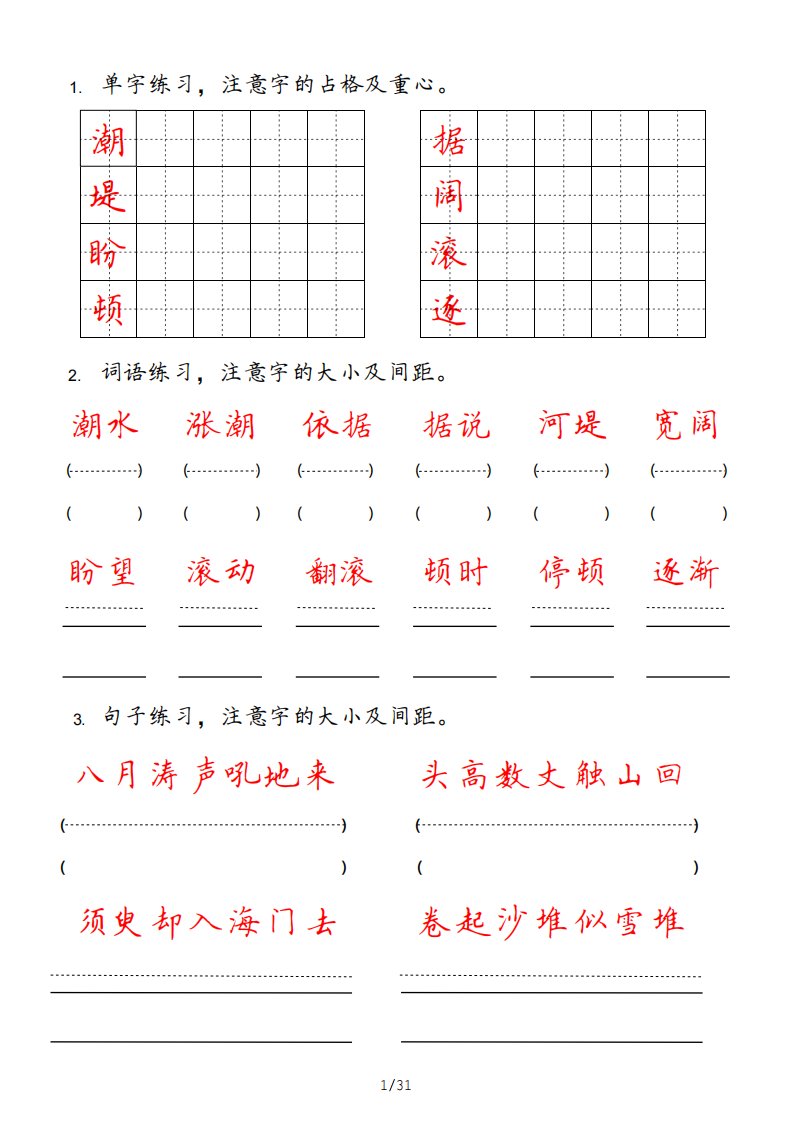 1. 单字练习，注意字的占格及重心。
潮 据
堤 阔
盼 滚
顿 逐
2. 词语练习，注意字的大小及间距。
潮水 涨潮 依据 据说 河堤 宽阔
( ) ( ) ( ) ( ) ( ) ( )
( ) ( ) ( ) ( ) ( ) ( )
盼望 滚动 翻滚 顿时 停顿 逐渐
3. 句子练习，注意字的大小及间距。
八月涛声吼地来 头高数丈触山回
( ) ( )
( ) ( )
须臾却入海门去 卷起沙堆似雪堆
1/31